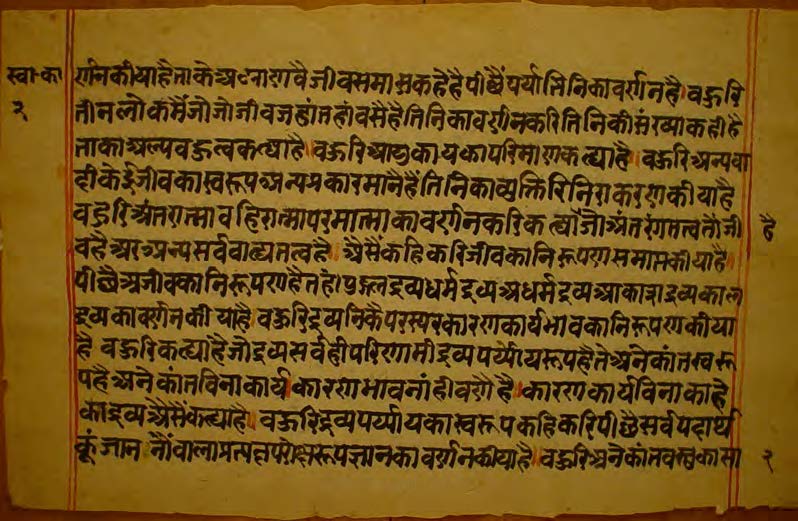 स्वा॰का र्णन कीया है ताके अठ्याणवै जीवसमास कहे है पीछैं पर्याप्तिनिका वर्णन है। बहुरि
२ तीन लोकमैं जो जो जीव जहां तहां वसै है तिनिका वर्णन करि तिनिकी संख्या कही है
ताका अल्पबहुत्व कह्या है। बहुरि आयुकायका परिमाण कह्या है। बहुरि अन्यवा
दी केई जीवका स्वरूप अन्यप्रकार मानै हैं तिनिका युक्तिरि निराकरण कीया है
बहुरि अंतरात्मा बहिरात्मा परमात्माका वर्णन करि कह्यौ जो अंतरंगतत्व तौ जी है
व है अर अन्य सर्व बाह्यतत्व है। अैसैं कहिकरि जीवका निरूपण समाप्त कीया है।
पीछै अजीवका निरूपण है तहां पुद्गलद्रव्य धर्मद्रव्य अधर्मद्रव्य आकाशद्रव्य काल
द्रव्यका वर्णन कीया है बहुरि द्रव्यनिकै परस्पर कारणकार्यभावका निरूपण कीया
है बहुरि कह्या है जो द्रव्य सर्व ही परिणामी द्रव्यपर्यायरूप है ते अनेकांतस्वरू
प है अनेकांत विना कार्यकारणभाव नांही वणै है। कारणकार्य विना काहे
का द्रव्य अैसैं कह्या है। बहुरि द्रव्यपर्यायका स्वरूप कहिकरि पीछै सर्व पदार्थ
कूं जाननैंवाला प्रत्यक्षपरोक्षरूप ज्ञानका वर्णन कीया है। बहुरि अनेकांतवस्तुका सा २